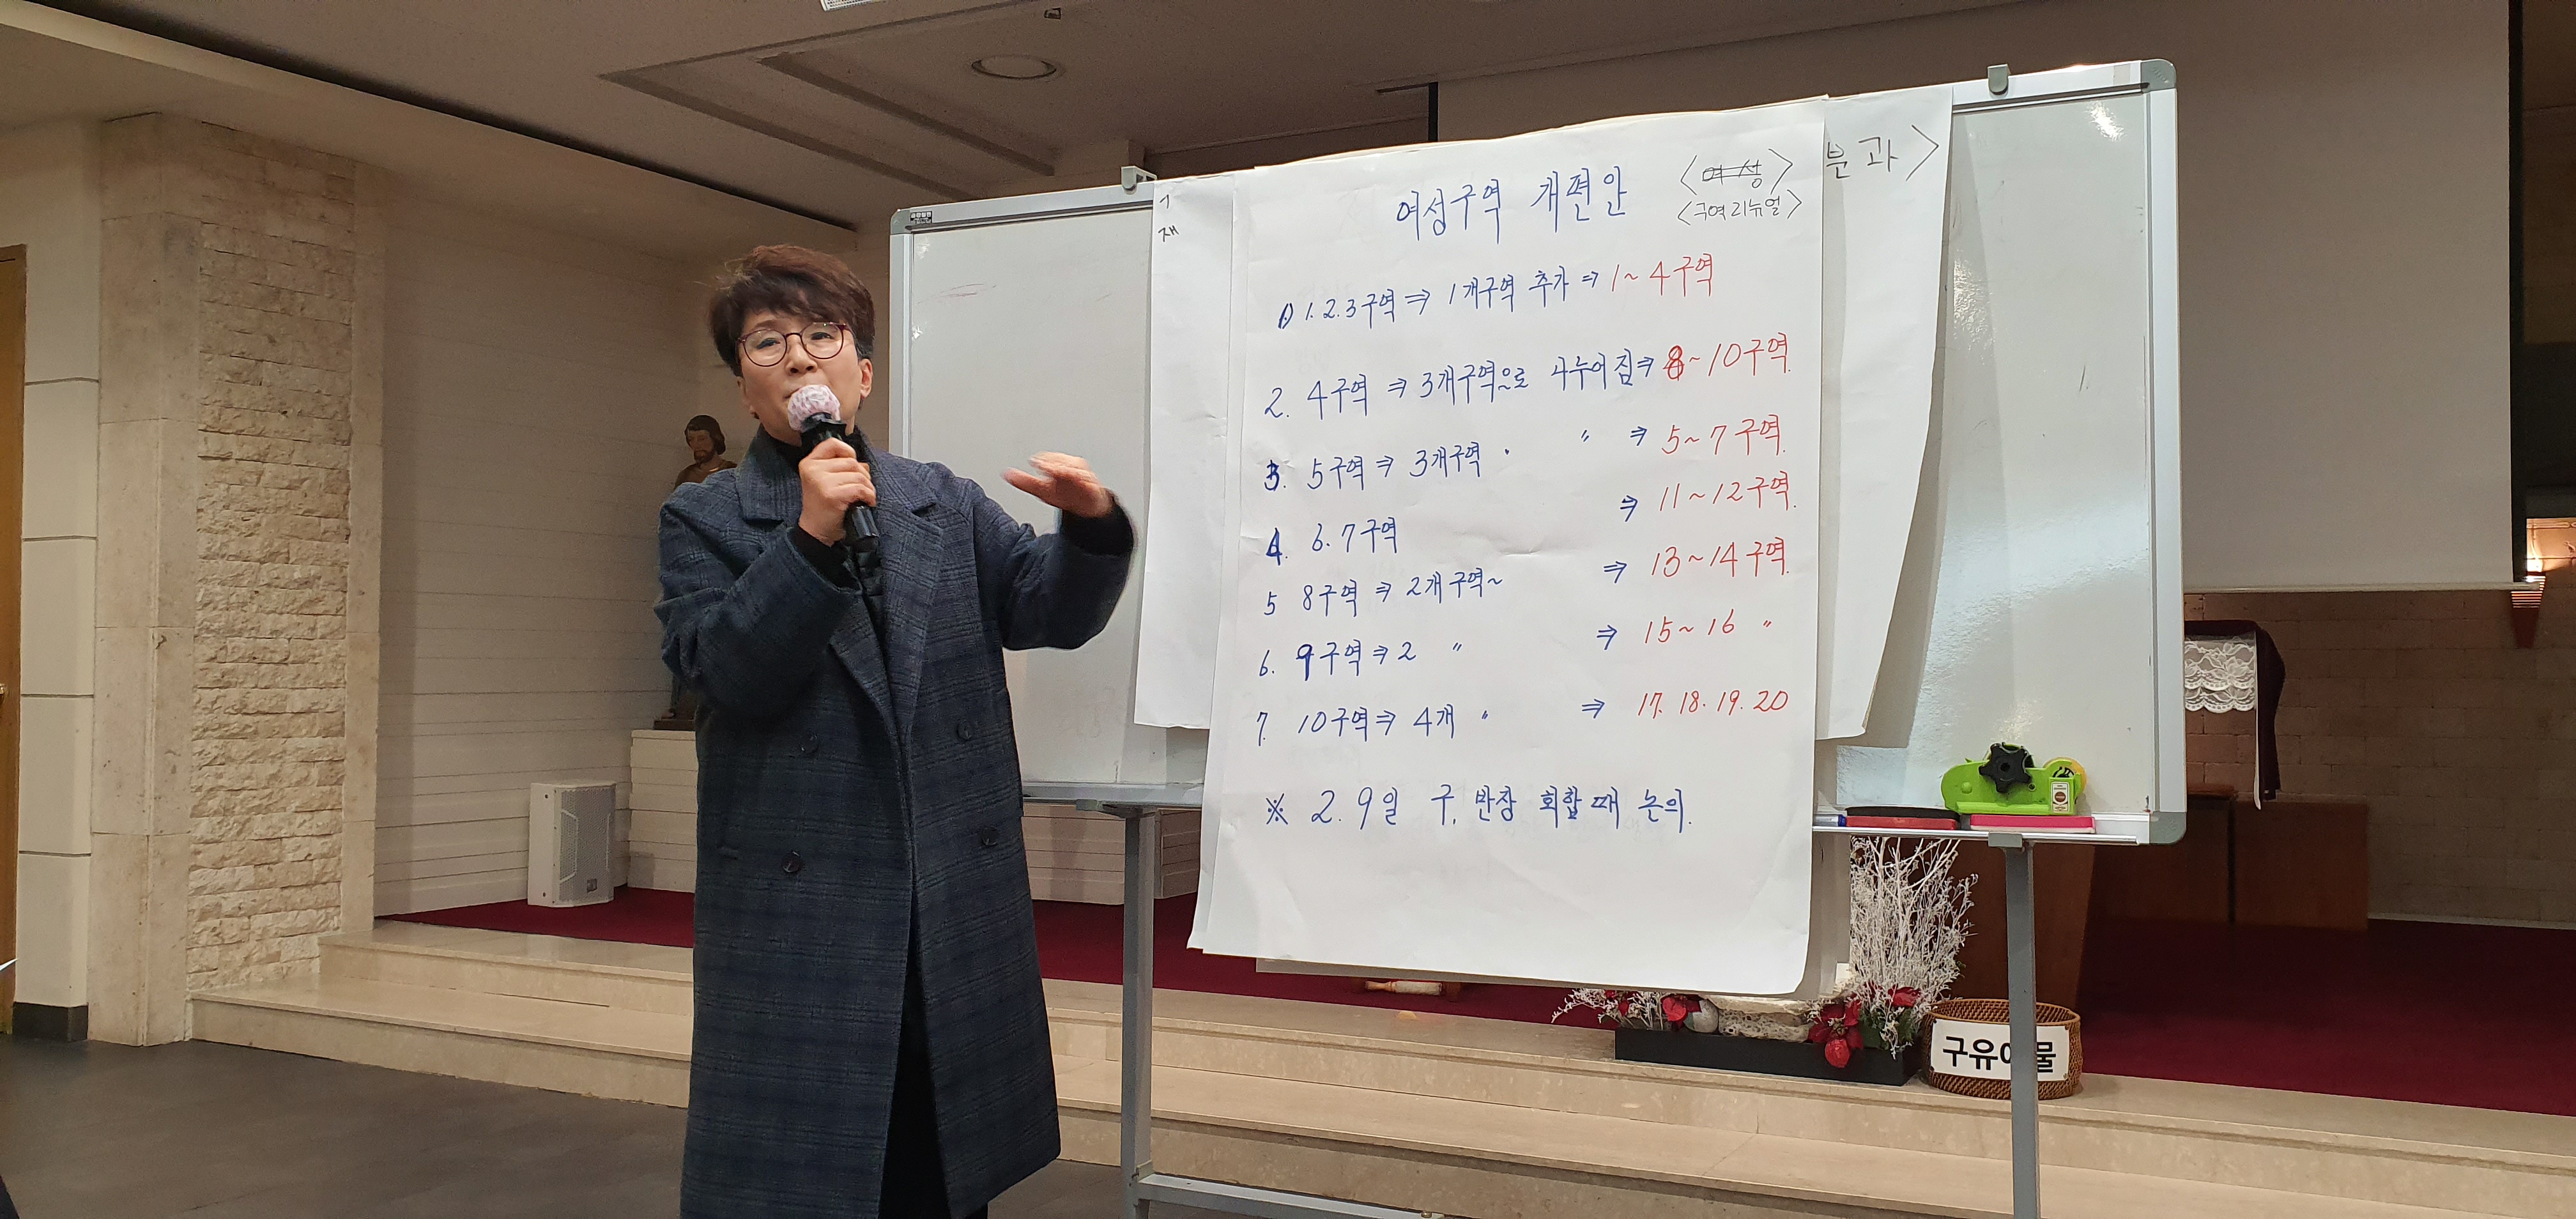 여성구역 개편안
<여성>
<구역리뉴얼>
분과>
재
1) 1. 2. 3구역 ⇒ 1개구역 추가 ⇒ 1~4구역
2. 4구역 ⇒ 3개구역으로 나누어짐 ⇒ 8~10구역.
3. 5구역 ⇒ 3개구역 〃 ⇒ 5~7구역.
4. 6. 7구역 ⇒ 11~12구역.
5 8구역 ⇒ 2개구역~ ⇒ 13~14구역.
6. 9구역 ⇒ 2 〃 ⇒ 15~16 〃
7. 10구역 ⇒ 4개 〃 ⇒ 17. 18. 19. 20
※ 2. 9일 구, 반장 회합 때 논의.